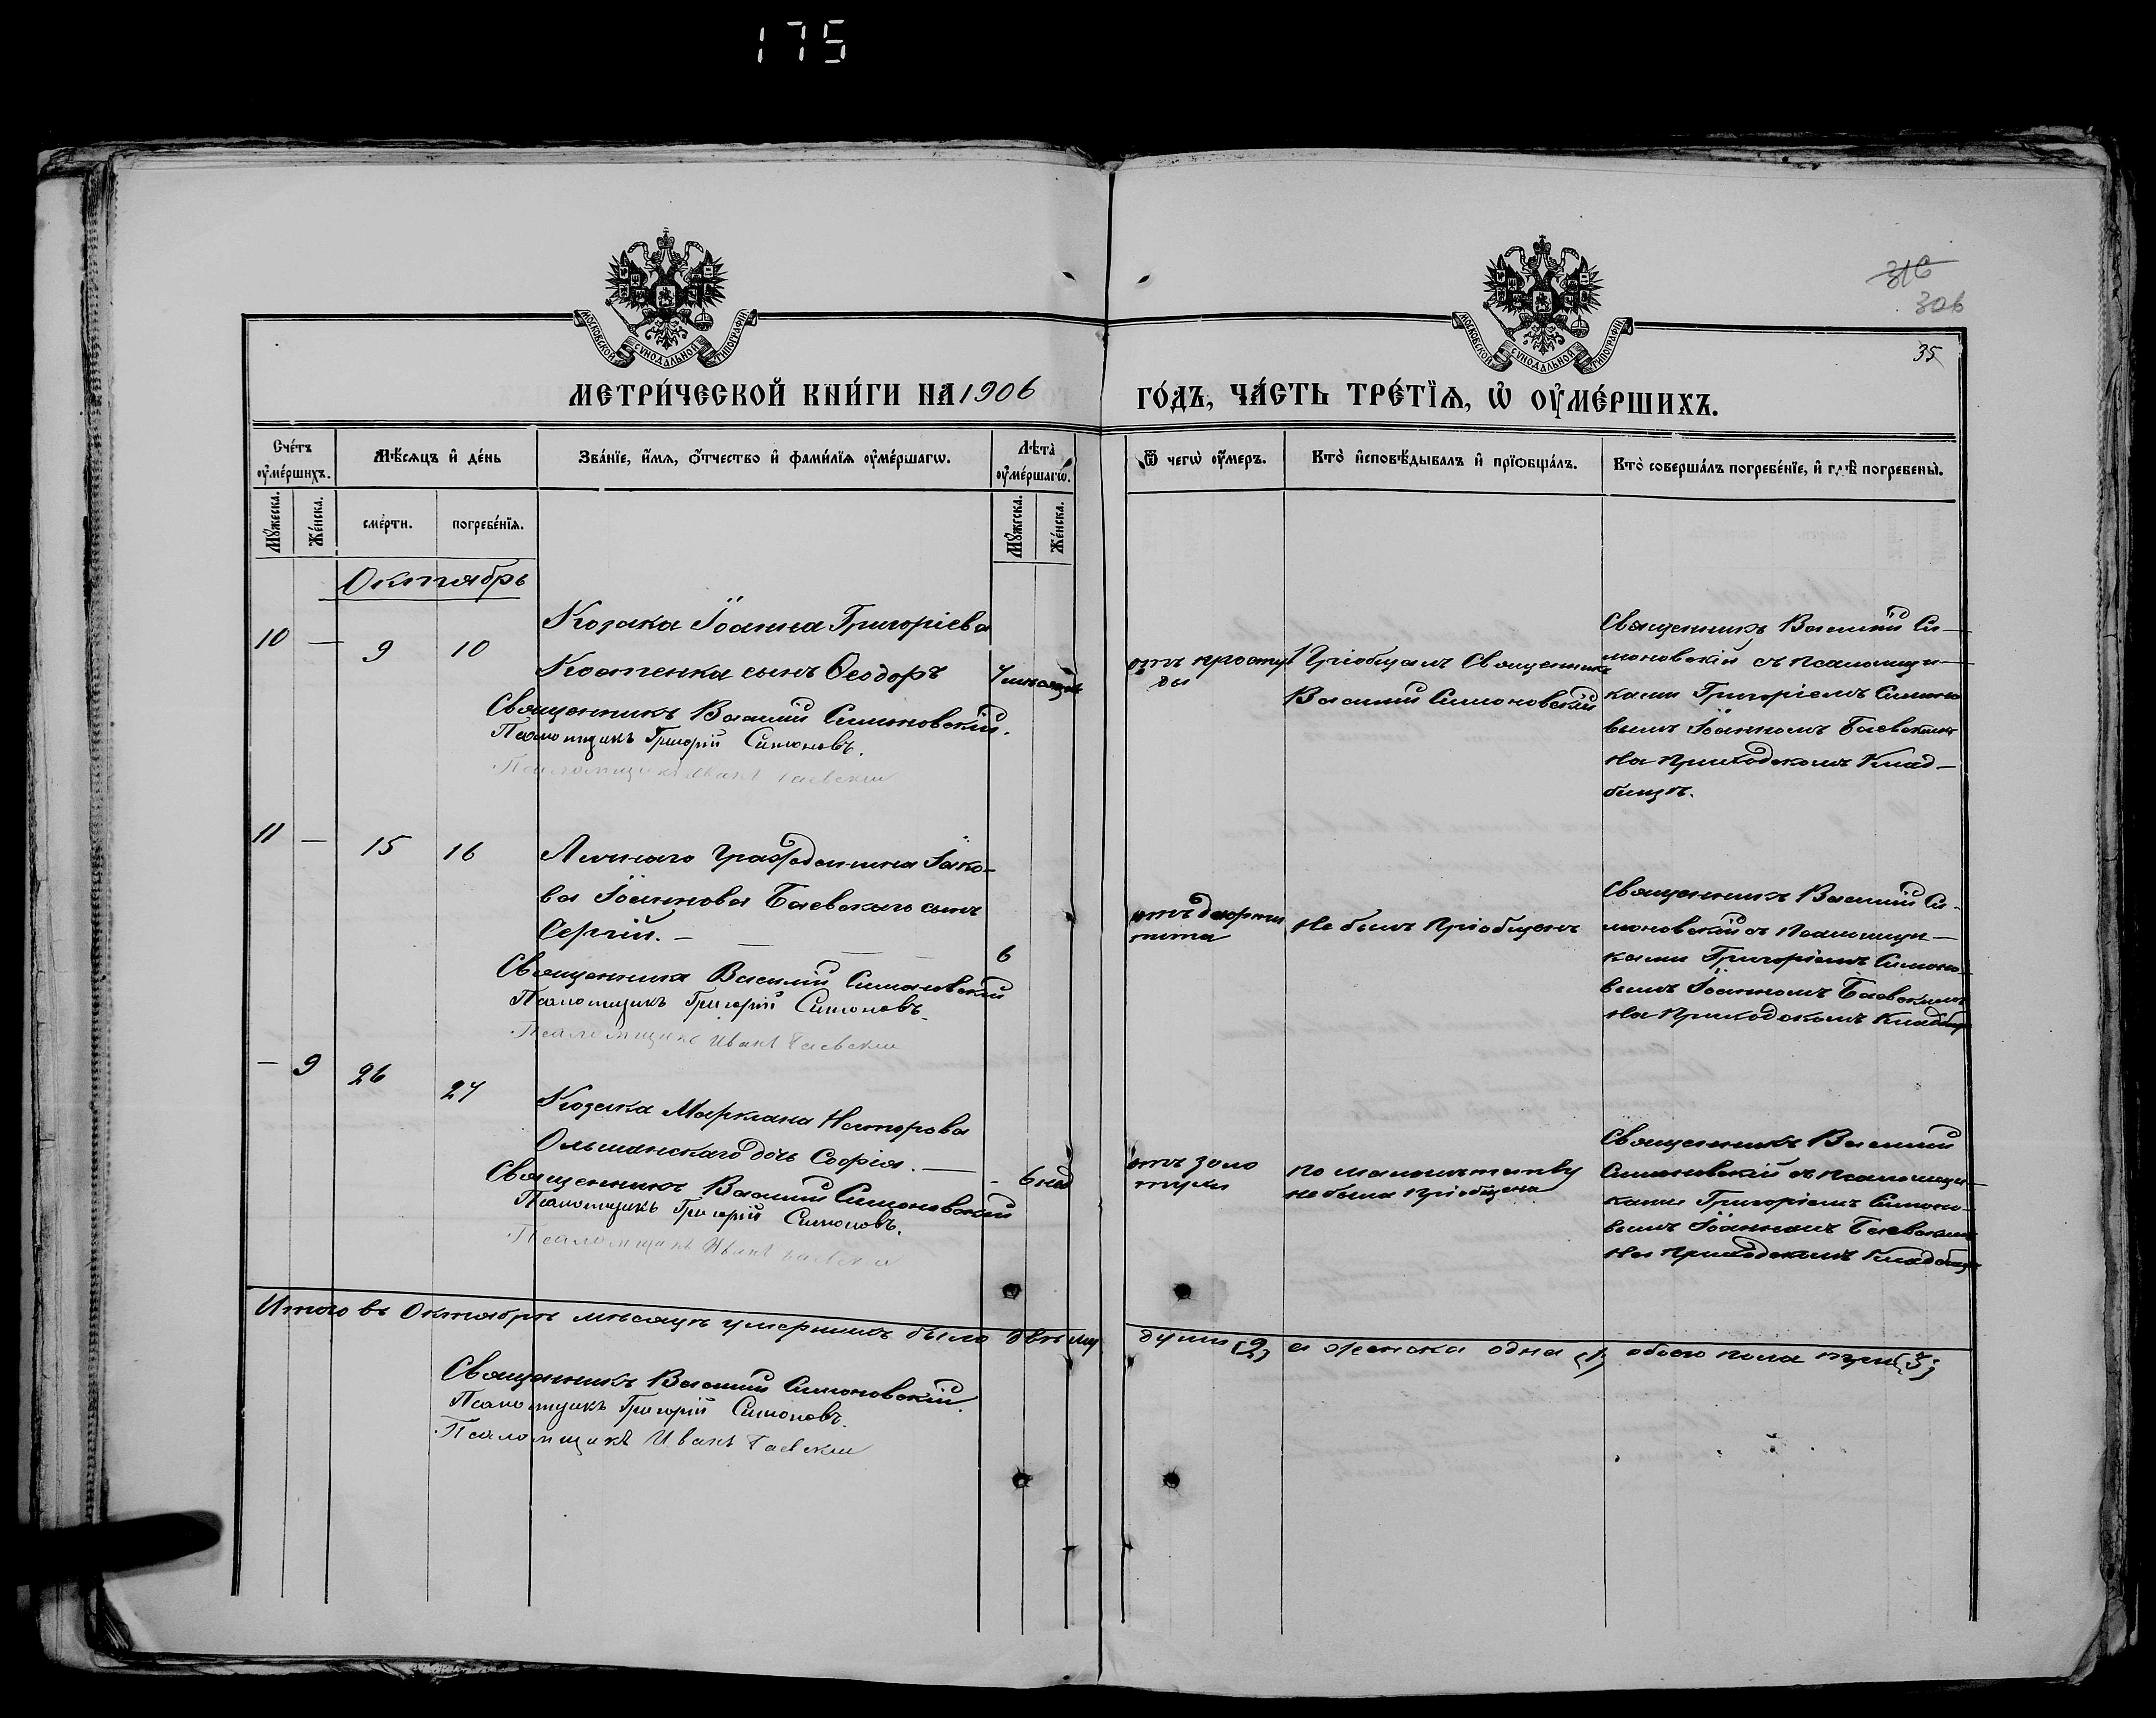 175
316
306
35
МОСКОВСКОЙ СѴНОДАЛЬНОЙ ТИПОГРАФІИ
МОСКОВСКОЙ СѴНОДАЛЬНОЙ ТИПОГРАФІИ
МЕТРИ́ЧЕСКОЙ КНИ́ГИ НА 1906
ГО́ДЪ, ЧА́СТЬ ТРЕ́ТЇѦ, Ѡ҆ ОУ҆МЕ́РШИХЪ.
Сче́тъ оу҆ме́ршихъ.
Мѣ́сѧцъ и҆ де́нь
Зва́нїе, и҆́мѧ, ѻ҆́тчество и҆ фами́лїѧ оу҆ме́ршагѡ.
Лѣта̀ оу҆ме́ршагѡ.
Ѿ чегѡ̀ оу҆́меръ.
Кто̀ и҆сповѣ́дывалъ и҆ прїѡбща́лъ.
Кто̀ соверша́лъ погребе́нїе, и҆ гдѣ̀ погребены̀.
Мꙋ́жеска.
Же́нска.
сме́рти.
погребе́нїѧ.
Мꙋ́жеска.
Же́нска.
Октябрь
10 — 9 10
Козака Іоанна Григоріева
Костенка сынъ Ѳеодоръ
Священникъ Василій Симоновскій.
Псаломщикъ Григорій Симоновъ.
Псаломщикъ Иванъ Баевскій
отъ просту
ды
Пріобщалъ Священникъ
Василій Симоновскій
Священникъ Василій Си—
моновскій съ псаломщи—
ками Григоріемъ Симоно
вымъ Іоанномъ Баевскимъ
на приходскомъ Клад—
бищѣ.
11 — 15 16
Личнаго Гражданина Іако-
ва Іоаннова Баевскаго сынъ
Сергій. —
6
Священникъ Василій Симоновскій
Псаломщикъ Григорій Симоновъ.
Псаломщикъ Иванъ Баевскій
отъ
Не былъ пріобщенъ
Священникъ Василій Си-
моновскій съ псаломщи—
ками Григоріемъ Симоно-
вымъ Іоанномъ Баевскимъ
на приходскомъ Кладбищѣ
— 9 26 27
Козака Маркіана Несторова
Ольшанскаго дочь Софія. —
- 6 нед
Священникъ Василій Симоновскій
Псаломщикъ Григорій Симоновъ.
Псаломщикъ Иванъ Баевскій
отъ золо
тухи
по малолѣтству
не была пріобщена
Священникъ Василій
Симоновскій съ псаломщи—
ками Григоріемъ Симоно-
вымъ Іоанномъ Баевскимъ
на приходскомъ Кладбищѣ
Итого въ Октябрѣ мѣсяцѣ умершихъ было двѣ му
души (2) а женска одна (1) обоего пола три (3)
Священникъ Василій Симоновскій.
Псаломщикъ Григорій Симоновъ.
Псаломщикъ Иванъ Баевскій